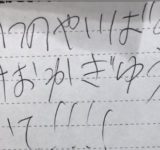 つのやいば
おかぎゆう
いて!!!!